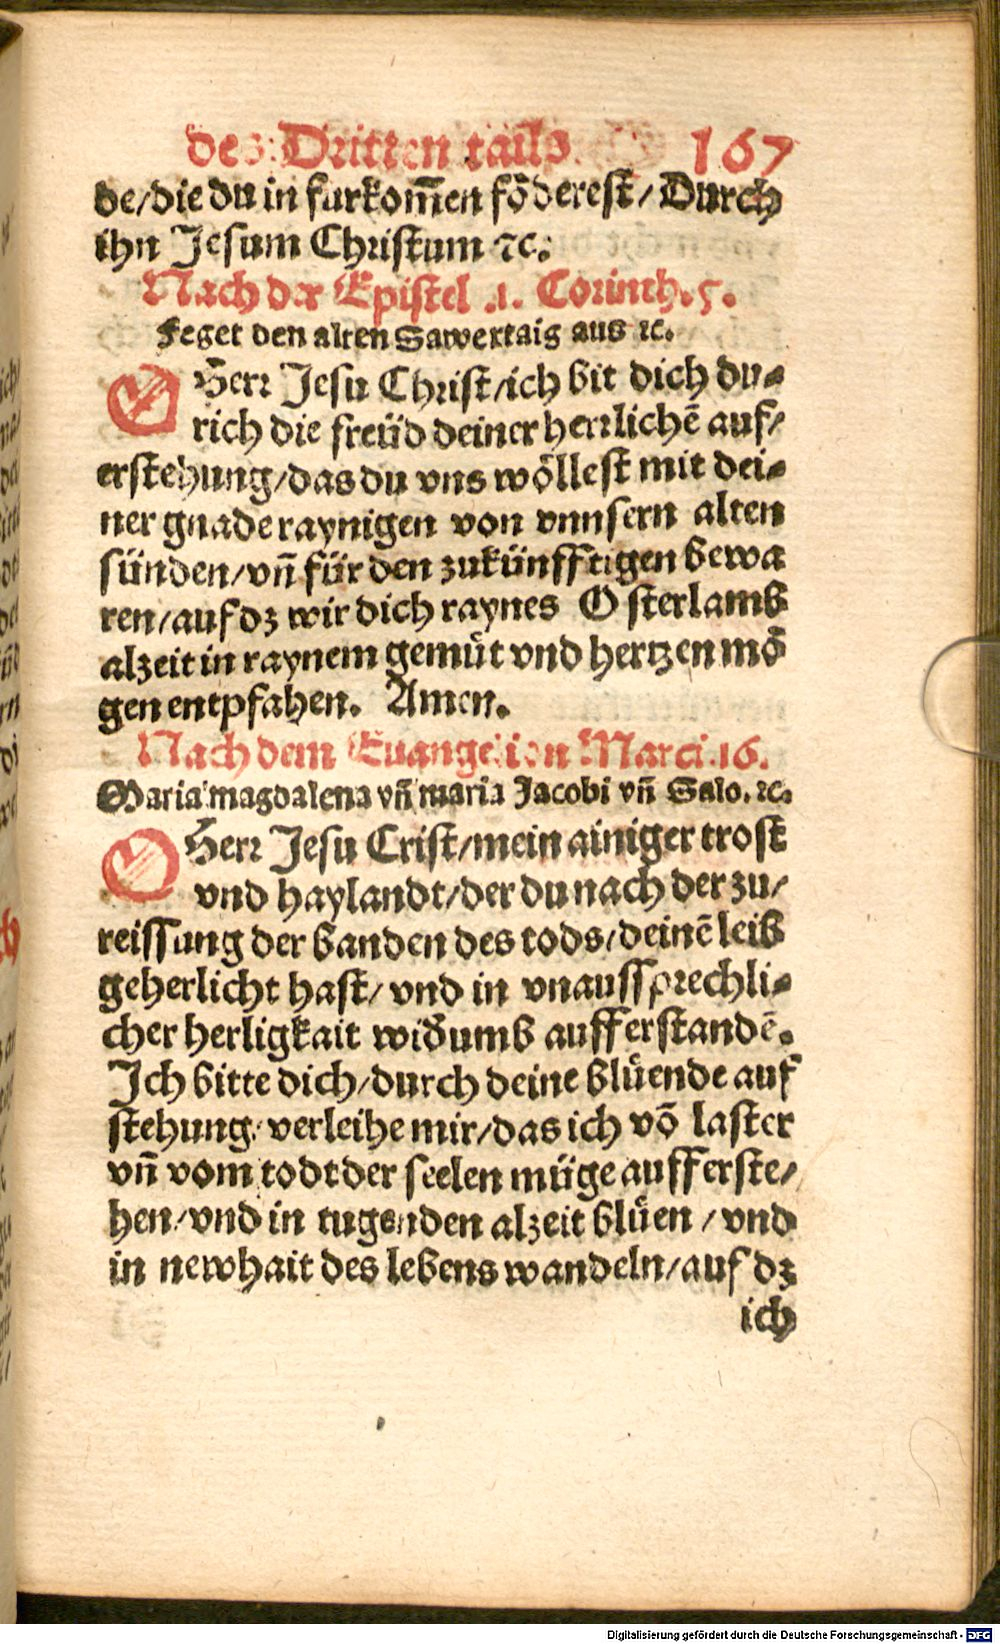 des Dritten tails. 167
de/die du in furkom̄en fȍderest/Durch
ihn Jesum Christum ⁊c.
Nach der Epistel .1. Corinth.5.
Feget den alten Sawertaig aus ⁊c.
O Herr Jesu Christ/ich bit dich du-
rich die freüd deiner herrlichē auf/
erstehung/das du vns wöllest mit dei-
ner gnade raynigen von vnnsern alten
sünden/vn̄ für den zukünfftigen bewa
ren/auf dz wir dich raynes Osterlamb
alzeit in raynem gemüt vnd hertzen mö
gen entpfahen. Amen.
Nach dem Euangelion Marci.16.
Maria magdalena vn̄ maria Jacobi vn̄ Salo.⁊c.
O Herr Jesu Crist/mein ainiger trost
vnd haylandt/der du nach der zu/
reissung der banden des tods/deinē leib
geherlicht hast/vnd in vnaussprechli-
cher herligkait widumb aufferstandē.
Ich bitte dich/durch deine blüende auf
stehung/verleihe mir/das ich vō laster
vn̄ vom todt der seelen müge aufferste/
hen/vnd in tugenden alzeit blüen/vnd
in newhait des lebens wandeln/auf dz
ich
Digitalisierung gefördert durch die Deutsche Forschungsgemeinschaft - DFG